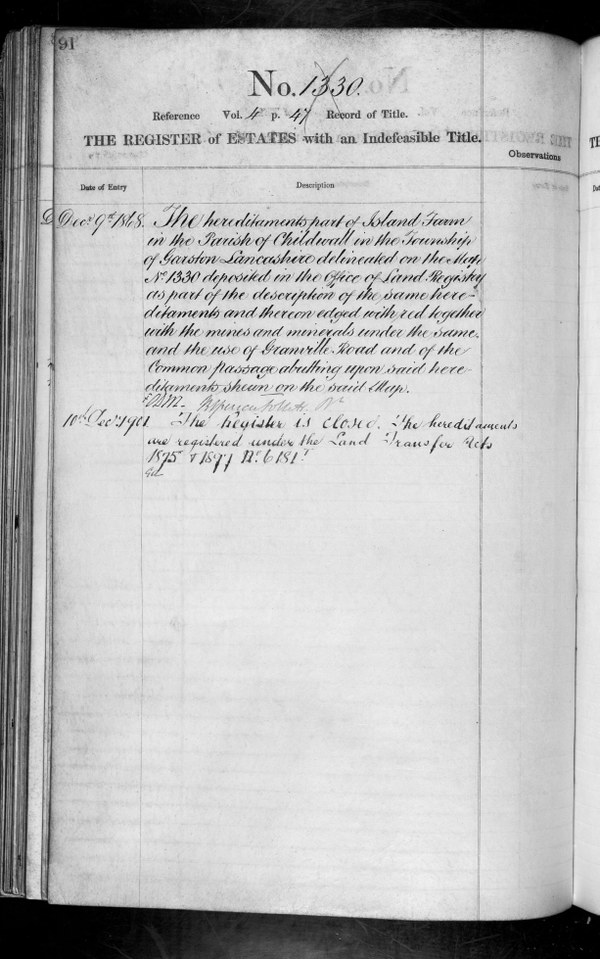 91
No. 1330.
Reference Vol. 4 p. 47 Record of Title.
THE REGISTER of ESTATES with an Indefeasible Title.
Observations
Date of Entry Description
Decr 9th 1868. The hereditaments part of Island Farm
in the Parish of Childwall in the Township
of Garston Lancashire delineated on the Map
No 1330 deposited in the Office of Land Registry
as part of the description of the same here-
ditaments and thereon edged with red together
with the mines and minerals under the same.
and the use of Granville Road and of the
Common passage abutting upon said here-
ditaments shewn on the said Map.
10th Decr 1901 The Register is closed. The hereditaments
are registered under the Land Transfer Acts
1875 & 1897 No. 6181